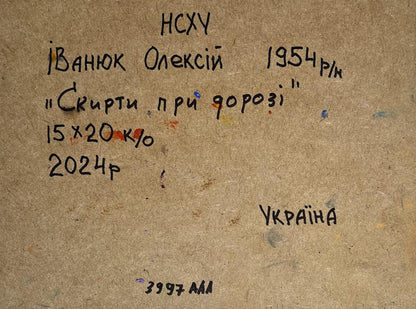 НСХУ
Іванюк Олексій 1954 р/н
„Скирти при дорозі"
15×20 к/о
2024р
Україна
3997 ААА